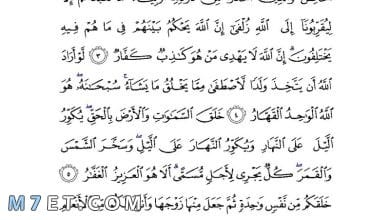 لِيُقَرِّبُونَآ إِلَى ٱللَّهِ زُلْفَىٰٓ إِنَّ ٱللَّهَ يَحْكُمُ بَيْنَهُمْ فِى مَا هُمْ فِيهِ
يَخْتَلِفُونَ ۗ إِنَّ ٱللَّهَ لَا يَهْدِى مَنْ هُوَ كَٰذِبٌ كَفَّارٌ ٣ لَّوْ أَرَادَ
ٱللَّهُ أَن يَتَّخِذَ وَلَدًا لَّٱصْطَفَىٰ مِمَّا يَخْلُقُ مَا يَشَآءُ ۚ سُبْحَٰنَهُۥ ۖ هُوَ
ٱللَّهُ ٱلْوَٰحِدُ ٱلْقَهَّارُ ٤ خَلَقَ ٱلسَّمَٰوَٰتِ وَٱلْأَرْضَ بِٱلْحَقِّ ۖ يُكَوِّرُ
ٱلَّيْلَ عَلَى ٱلنَّهَارِ وَيُكَوِّرُ ٱلنَّهَارَ عَلَى ٱلَّيْلِ ۖ وَسَخَّرَ ٱلشَّمْسَ
وَٱلْقَمَرَ ۖ كُلٌّ يَجْرِى لِأَجَلٍ مُّسَمًّى ۗ أَلَا هُوَ ٱلْعَزِيزُ ٱلْغَفَّٰرُ ٥
خَلَقَكُم مِّن نَّفْسٍ وَٰحِدَةٍ ثُمَّ جَعَلَ مِنْهَا زَوْجَهَا وَأَنزَلَ لَكُم مِّنَ ٱلْأَنْعَٰمِ
M7ET.COM